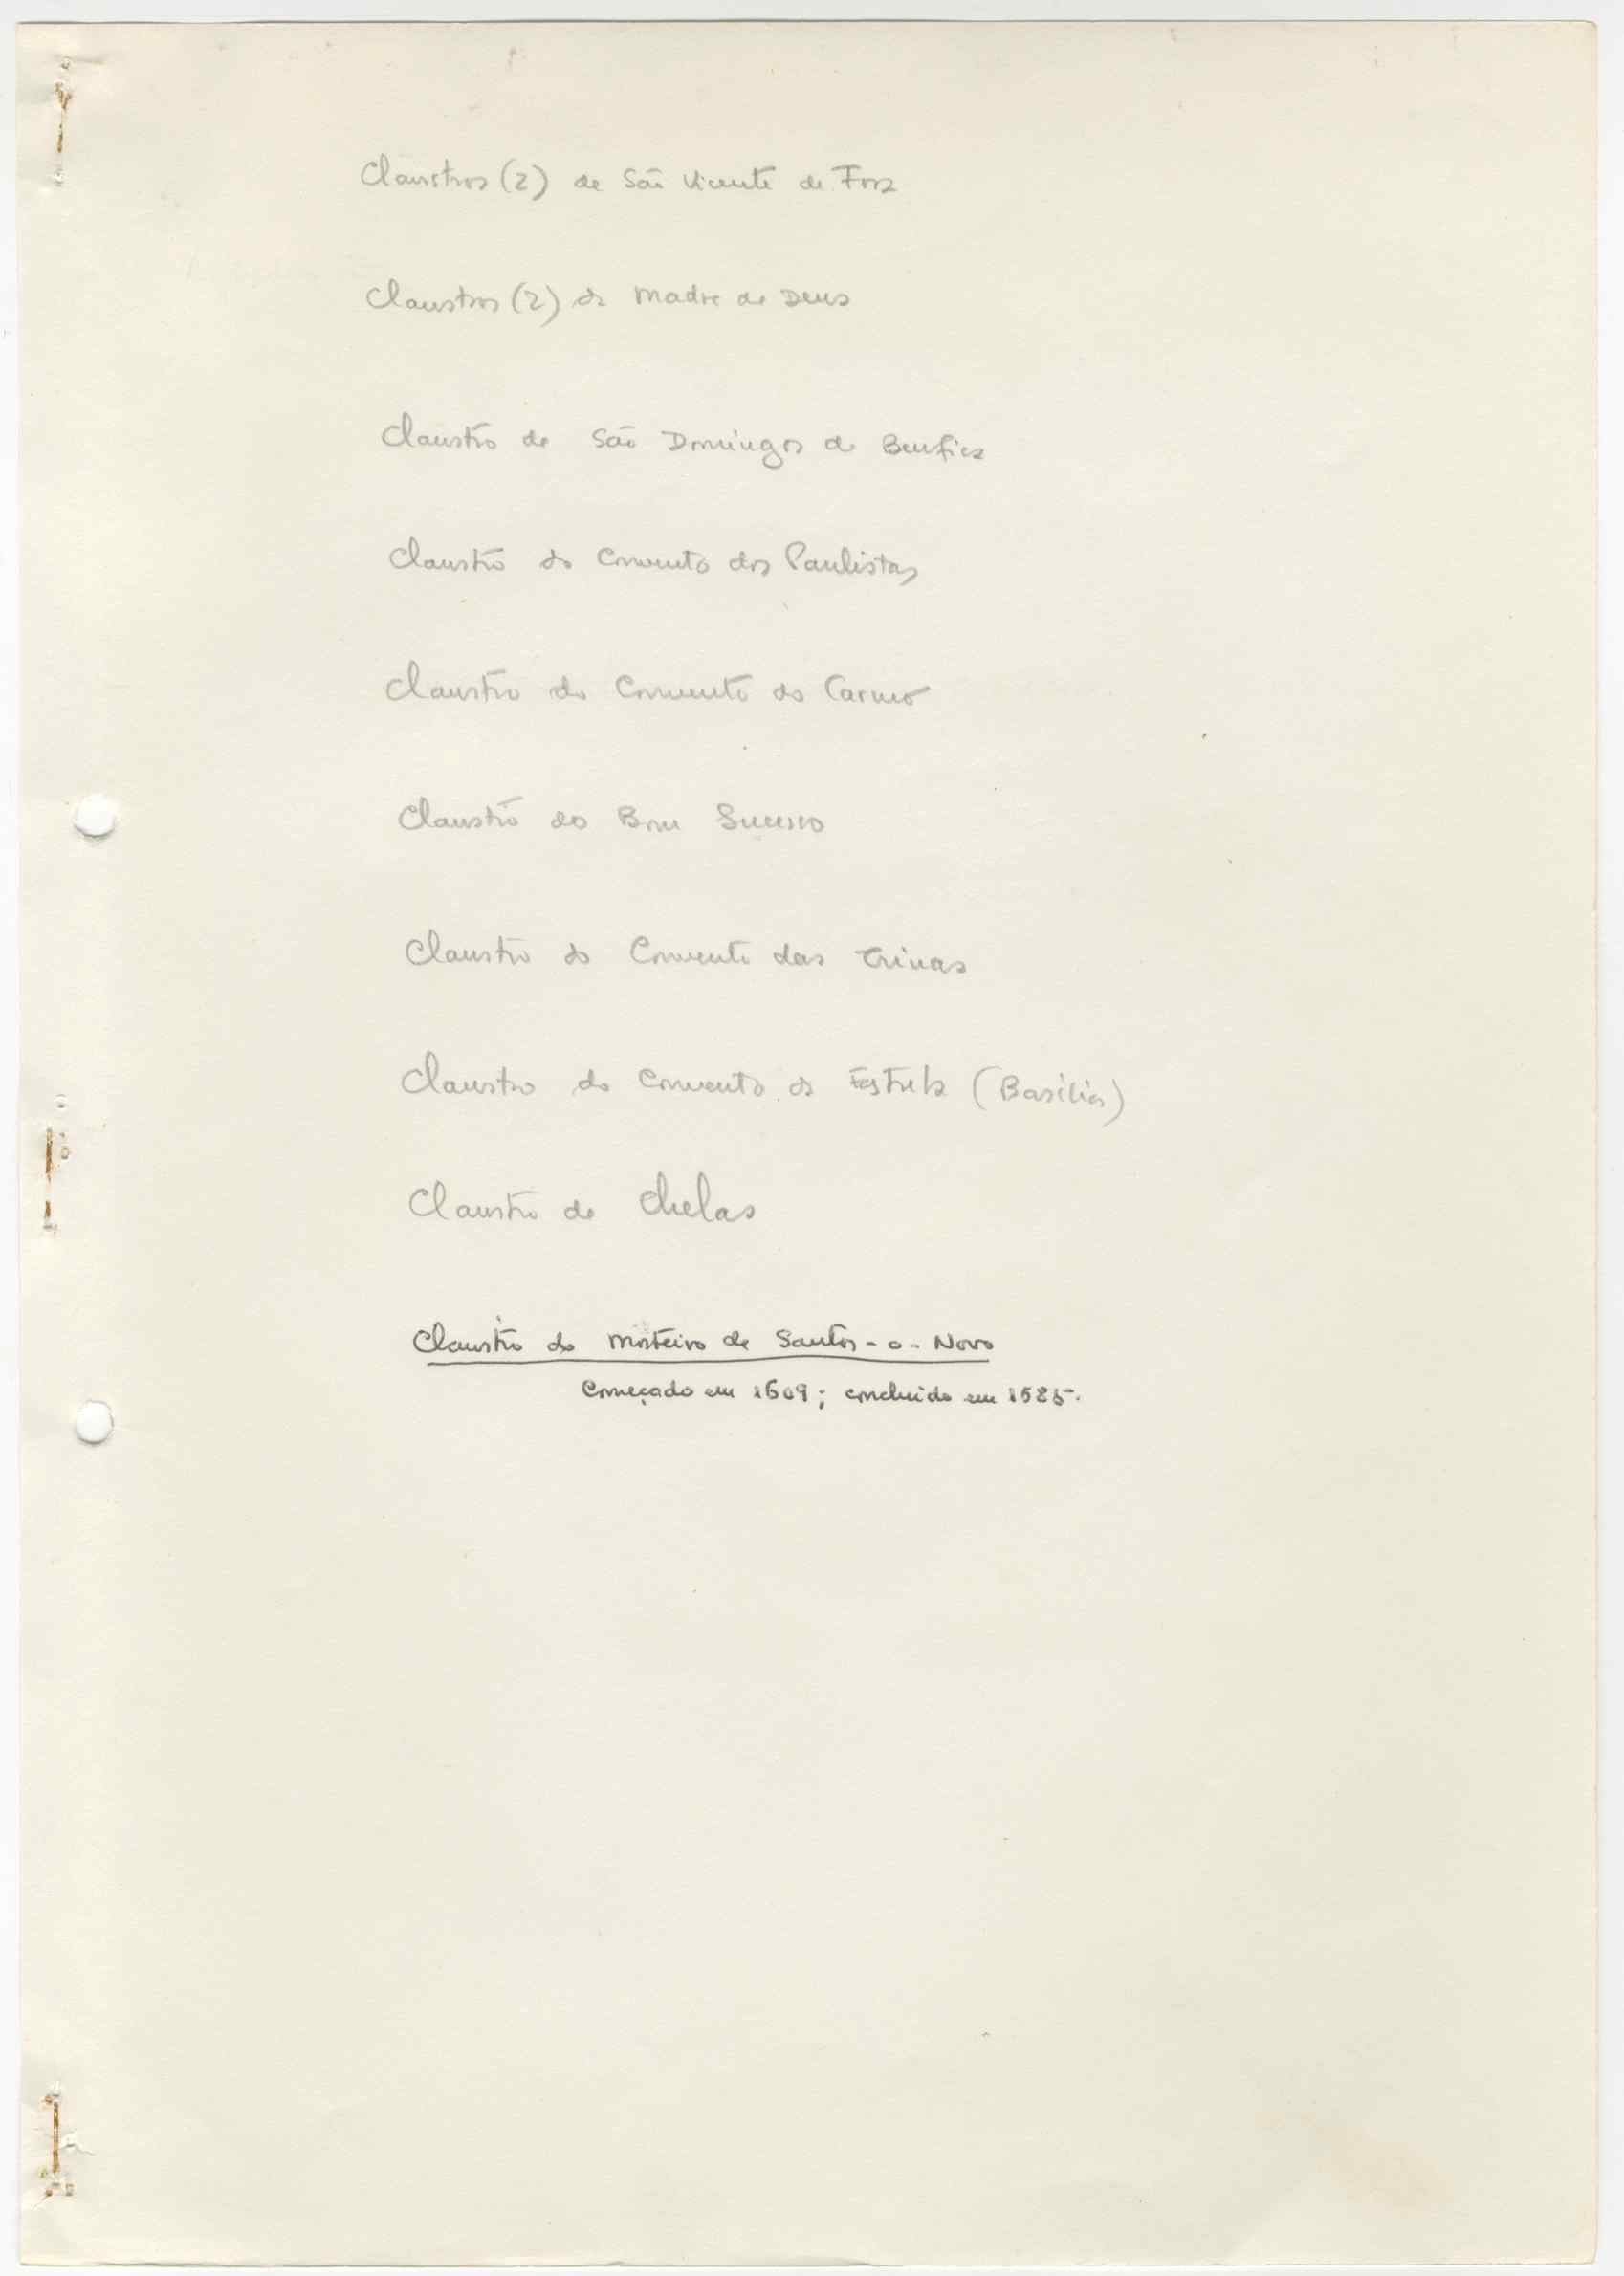 Claustros (2) de São Vicente de Fora
Claustros (2) da Madre de Deus
Claustro de São Domingos de Benfica
Claustro do Convento dos Paulistas
Claustro do Convento do Carmo
Claustro do Bom Sucesso
Claustro do Convento das Trinas
Claustro do Convento da Estrela (Basílica)
Claustro de Chelas
Claustro do Mosteiro de Santos-o-Novo
Começado em 1609; concluido em